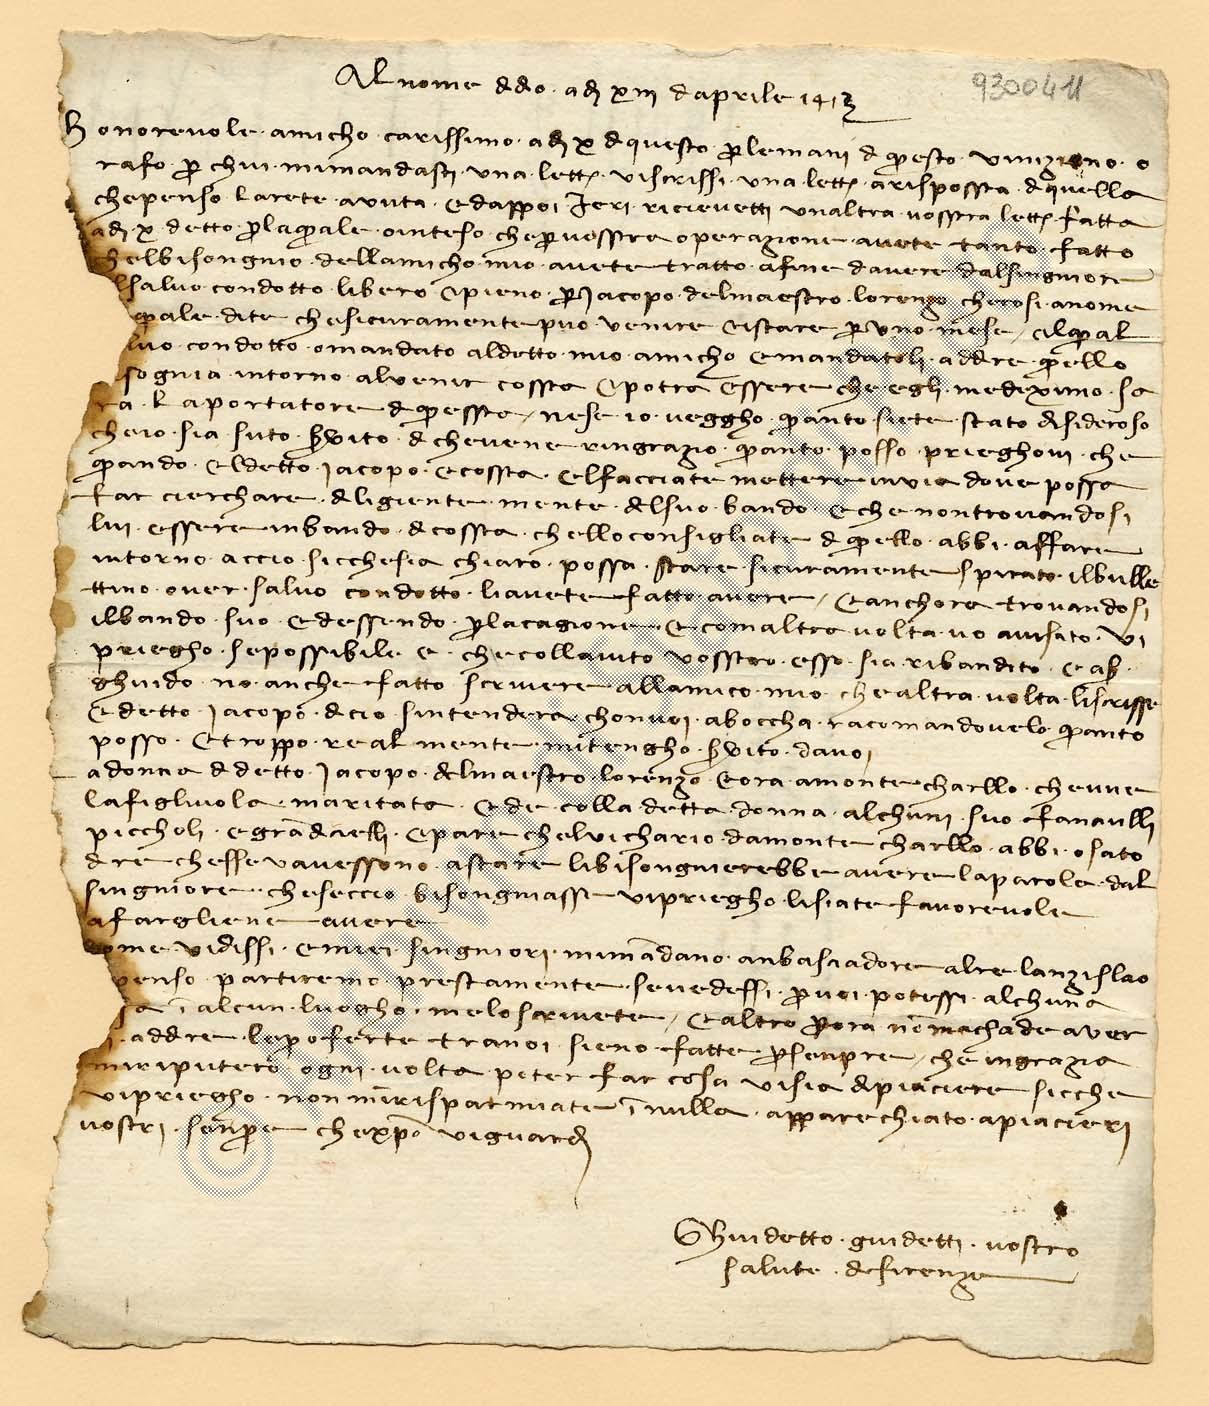 Al nome ddio adì xiii daprile 1413
9300411
Honorevole amicho carissimo adì x dquesto p lemani d questo vinizi no o
rafo p chui mimandasti una lettª viscrissi una lettª arispossta dquella
chepenso larete avuta edappoi Ieri ricievetti unaltra vosstra lettª fatta
adì x detto plaquale ointeso chepvosstra operazione avete tanto fatto
chelbisongnio dellamicho mio avete tratto afine davere dalsingniore
lsalvo condotto libero epieno pJacopo delmaestro lorenzo checosi anome
quale dite chesicuramente può venire eistare puno mese / ilqual
lvo condotto omandato aldetto mio amicho emandatoli addire quello
sognia intorno alvenir cossta epotra essere che egli medeximo sa
ra laportatore dquessta / nese io vegho quanto siete stato disideroso
cheio sia suto svito d chevene ringrazio quanto posso prieghovi che
quando eldetto Jacopo ecossta elfacciate mettere invia dove possa
far cierchare diligiente mente delsuo bando eche nontrovandosi
lui essere inbando dicossta chelloconsigliate d quello abbi affare
intorno accio sicchesia chiaro possa stare sicuramente spirato ilbulle
ttino over salvo condotto liavete fatto avere / eanchora trovandosi
ilbando suo edessendo placagione ecomaltra volta vo avisato vi
priegho sepossibile e checollaiuto vosstro esso sia ribandito eaš
ghuido no anche fatto scrivere allamico mio chealtra volta liscrisse
edetto Jacopo dicio sintendera chonvoi aboccha racomandovelo quanto
posso etroppo realmente mitengho svito davoi
adonna ddetto Jacopo delmaestro lorenzo eora amonte charllo chevve
lafigliuola maritata ede colla detta donna alchuni suo fanciulli
piccholi egrādicielli epare chelvichario damonte charllo abbi osato
dire chessevavessono astare libisongnierebbe avere laparola dal
singniore cheseccio bisongniassi vipriegho lisiate favorevole
afargliene avere
come vidissi emiei singniori mimādano anbasciadore alre lanzislao
penso partiremo prestamente sevedessi pvoi potessi alchuna
sa ī alcun luogho meloscrivete / ealtro pora nōmachade aver
i addire lepoferte tranoi sieno fatte psenpre / che ingrazia
miriputero ogni volta poter far cosa visia dipiaciere sicche
vipriegho non mirisparmiate ī nulla apparechiato apiacieri
vostri senpre chexpō viguardi
Ghuidetto guidetti vostro
salute difirenze